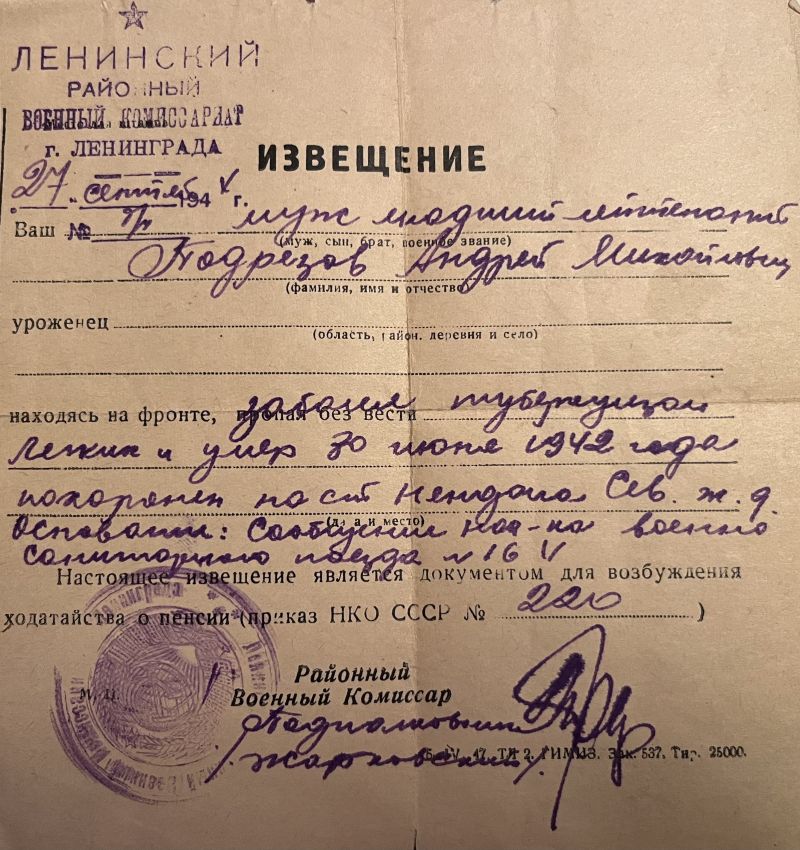 ЛЕНИНСКИЙ
РАЙОННЫЙ
ВОЕННЫЙ КОМИССАРИАТ
г. ЛЕНИНГРАДА
ИЗВЕЩЕНИЕ
27 сентяб 194 г.
№
Ваш муж младший лейтенант
(муж, сын, брат, военное звание)
Подрезов Андрей Михайлович
(фамилия, имя и отчество)
уроженец
(область, район, деревня и село)
находясь на фронте, пропал без вести заболел туберкулезом
легких и умер 30 июня 1942 года
похоронен на ст Няндома Сев. ж. д.
(дата и место)
Основание: Сообщение нач-ка военно
санитарного поезда № 16
Настоящее извещение является документом для возбуждения
ходатайства о пенсии (приказ НКО СССР № 220)
М. П.
Районный
Военный Комиссар
Подполковник
/Жарковский/
Зак. 537. Тир. 25000.